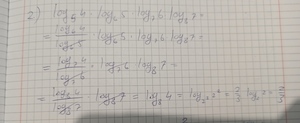 2) log₅4 · log₆5 · log₇6 log₈7 =
= log₆4 / log₆5 · log₆5 · log₇6 log₈7 =
= log₇4 / log₇6 · log₇6 log₈7 =
= log₈4 / log₈7 · log₈7 = log₈4 = log₂³2² = 2/3 log₂2 = 2/3